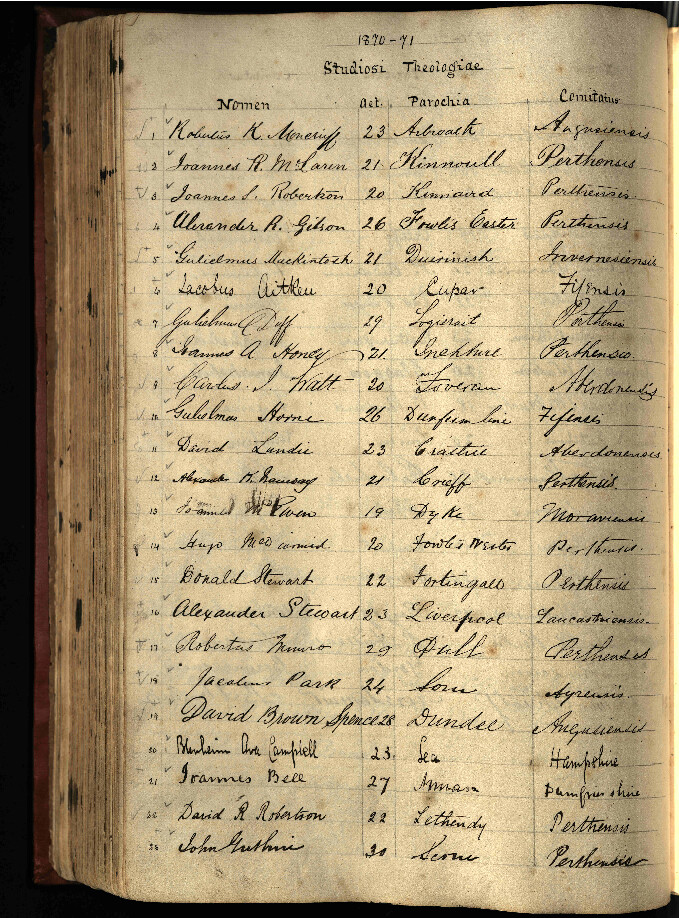 1870-71
Studiosi Theologiae
Nomen Aet. Parochia Comitatus
1 Robertus K. Moncrieff 23 Arbroath Angusiensis
2 Ioannes R. McLaren 21 Kinnoull Perthensis
3 Joannes S. Robertson 20 Kinnaird Perthensis
4 Alexander R. Gibson 26 Fowlis Easter Perthensis
5 Gulielmus Mackintosh 21 Duirinish Invernesiensis
6 Iacobus Aitken 20 Cupar Fifensis
7 Gulielmus Duff 29 Logierait Perthensis
8 Ioannes A. Honey 21 Inchture Perthensis
9 I. Watt 20 Foveran Aberdonensis
10 Gulielmus Horne 26 Dunfermline Fifensis
11 David Lundie 23 Craithie Aberdonensis
12 Alexander Ramsay 21 Crieff Perthensis
13 19 Dyke Moraviensis
14 Hugo 20 Fowlis Wester Perthensis
15 Donald Stewart 22 Fortingall Perthensis
16 Alexander Stewart 23 Liverpool Lancastriensis
17 Robertus Munro 29 Dull Perthensis
18 Jacobus Park 24 Sorn Ayrensis
19 David Brown Spence 28 Dundee Angusiensis
20 Blenheim Ava Campbell 23 Sea Hampshire
21 Ioannes Bell 27 Annan Dumfriesshire
22 David R Robertson 22 Lethendy Perthensis
23 John Guthrie 30 Scone Perthensis